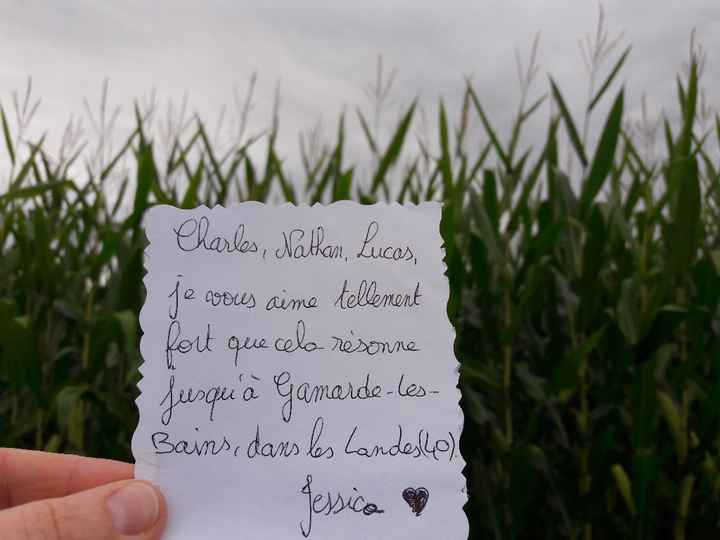 Charles, Nathan, Lucas,
je vous aime tellement
fort que cela résonne
jusqu'à Gamarde-les-
Bains, dans les Landes (40).
Jessica ♥